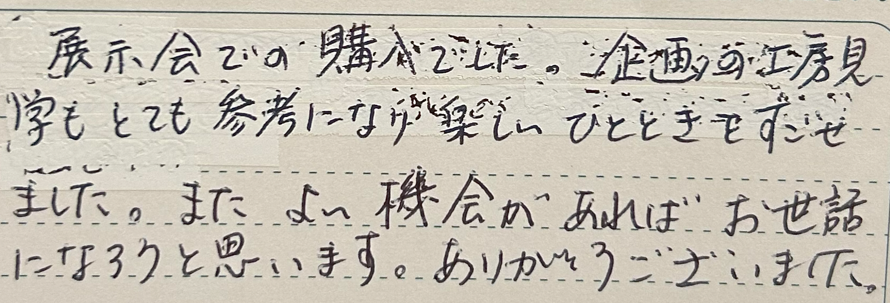 展示会での購入でした。企画の工房見
学もとても参考になり楽しいひとときをすごせ
ました。また よい機会があればお世話
になろうと思います。ありがとうございました。